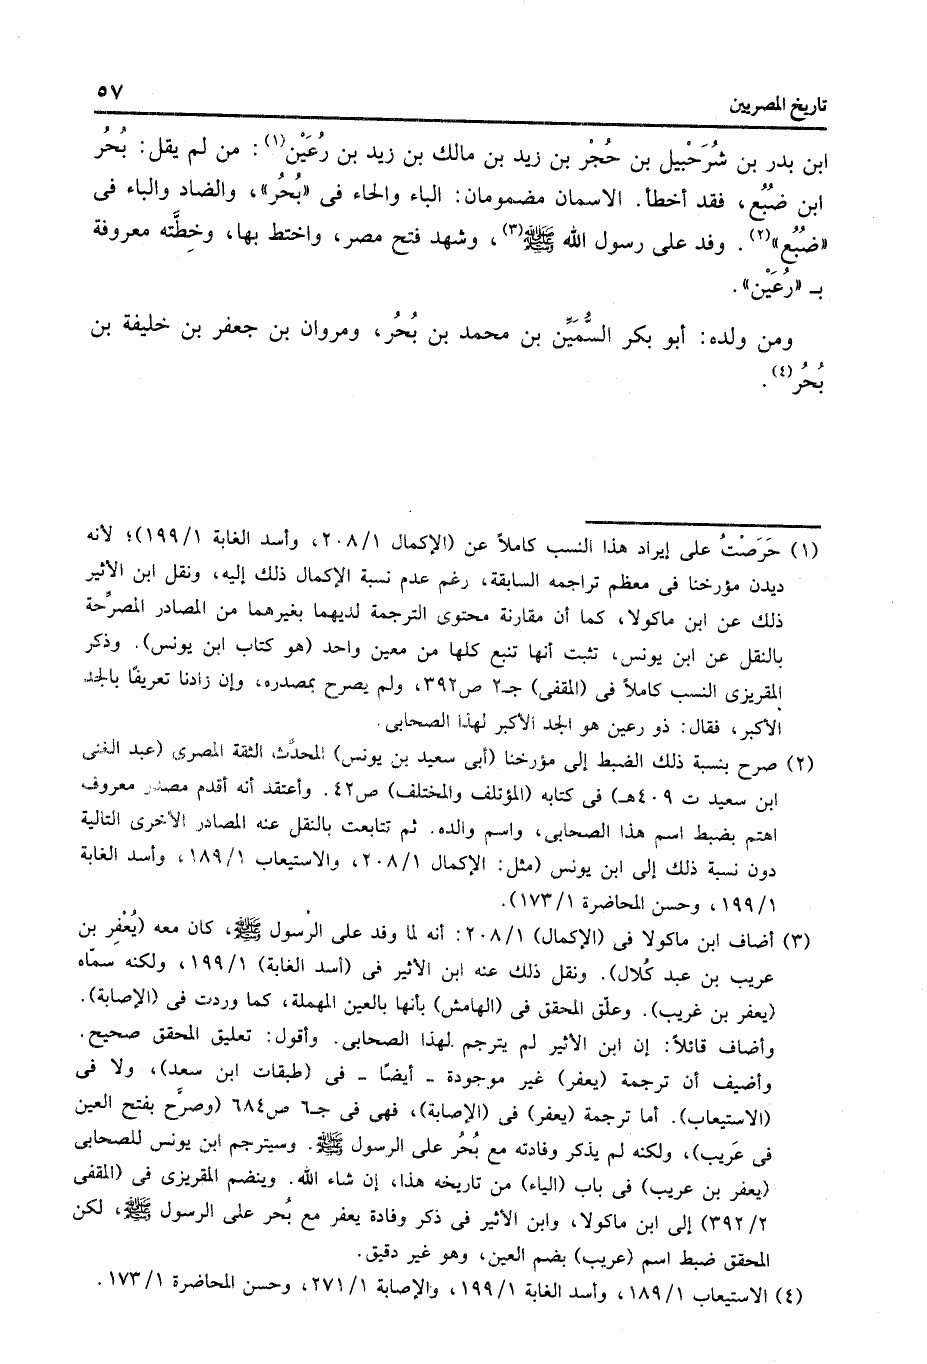 ٥٧
تاريخ المصريين
ابن بدر بن شُرَحْبيل بن حُجْر بن زيد بن مالك بن زيد بن رُعَيْن(١): من لم يقل: بُحُر
ابن ضُبُع، فقد أخطأ. الاسمان مضمومان: الباء والحاء فى «بُحُر»، والضاد والباء فى
«ضُبُع»(٢). وفد على رسول الله ﷺ(٣)، وشهد فتح مصر، واختط بها، وخِطَّته معروفة
بـ «رُعَيْن».
ومن ولده: أبو بكر السُّمَيِّن بن محمد بن بُحُر، ومروان بن جعفر بن خليفة بن
بُحُر(٤).
(١) حَرَصْتُ على إيراد هذا النسب كاملاً عن (الإكمال ٢٠٨/١، وأسد الغابة ١٩٩/١)؛ لأنه
ديدن مؤرخنا فى معظم تراجمه السابقة، رغم عدم نسبة الإكمال ذلك إليه، ونقل ابن الأثير
ذلك عن ابن ماكولا، كما أن مقارنة محتوى الترجمة لديهما بغيرهما من المصادر المصرِّحة
بالنقل عن ابن يونس، تثبت أنها تنبع كلها من معين واحد (هو كتاب ابن يونس). وذكر
المقريزى النسب كاملاً فى (المقفى) جـ٢ ص٣٩٢، ولم يصرح بمصدره، وإن زادنا تعريفًا بالجد
الأكبر، فقال: ذو رعين هو الجد الأكبر لهذا الصحابى.
(٢) صرح بنسبة ذلك الضبط إلى مؤرخنا (أبى سعيد بن يونس) المحدَّث الثقة المصرى (عبد الغنى
ابن سعيد ت ٤٠٩هـ) فى كتابه (المؤتلف والمختلف) ص٤٢. وأعتقد أنه أقدم مصدر معروف
اهتم بضبط اسم هذا الصحابى، واسم والده. ثم تتابعت بالنقل عنه المصادر الأخرى التالية
دون نسبة ذلك إلى ابن يونس (مثل: الإكمال ٢٠٨/١، والاستيعاب ١٨٩/١، وأسد الغابة
١٩٩/١، وحسن المحاضرة ١٧٣/١).
(٣) أضاف ابن ماكولا فى (الإكمال) ٢٠٨/١: أنه لما وفد على الرسول ﷺ، كان معه (يُعْفِر بن
عريب بن عبد كُلال). ونقل ذلك عنه ابن الأثير فى (أسد الغابة) ١٩٩/١، ولكنه سمّاه
(يعفر بن غريب). وعلّق المحقق فى (الهامش) بأنها بالعين المهملة، كما وردت فى (الإصابة).
وأضاف قائلاً: إن ابن الأثير لم يترجم لهذا الصحابى. وأقول: تعليق المحقق صحيح.
وأضيف أن ترجمة (يعفر) غير موجودة - أيضًا - فى (طبقات ابن سعد)، ولا فى
(الاستيعاب). أما ترجمة (يعفر) فى (الإصابة)، فهى فى جـ٦ ص٦٨٤ (وصرَّح بفتح العين
فى عَريب)، ولكنه لم يذكر وفادته مع بُحُر على الرسول ﷺ. وسيترجم ابن يونس للصحابى
(يعفر بن عريب) فى باب (الياء) من تاريخه هذا، إن شاء الله. وينضم المقريزى فى (المقفى
٣٩٢/٢) إلى ابن ماكولا، وابن الأثير فى ذكر وفادة يعفر مع بُحر على الرسول ﷺ، لكن
المحقق ضبط اسم (عريب) بضم العين، وهو غير دقيق.
(٤) الاستيعاب ١٨٩/١، وأسد الغابة ١٩٩/١، والإصابة ٢٧١/١، وحسن المحاضرة ١٧٣/١.